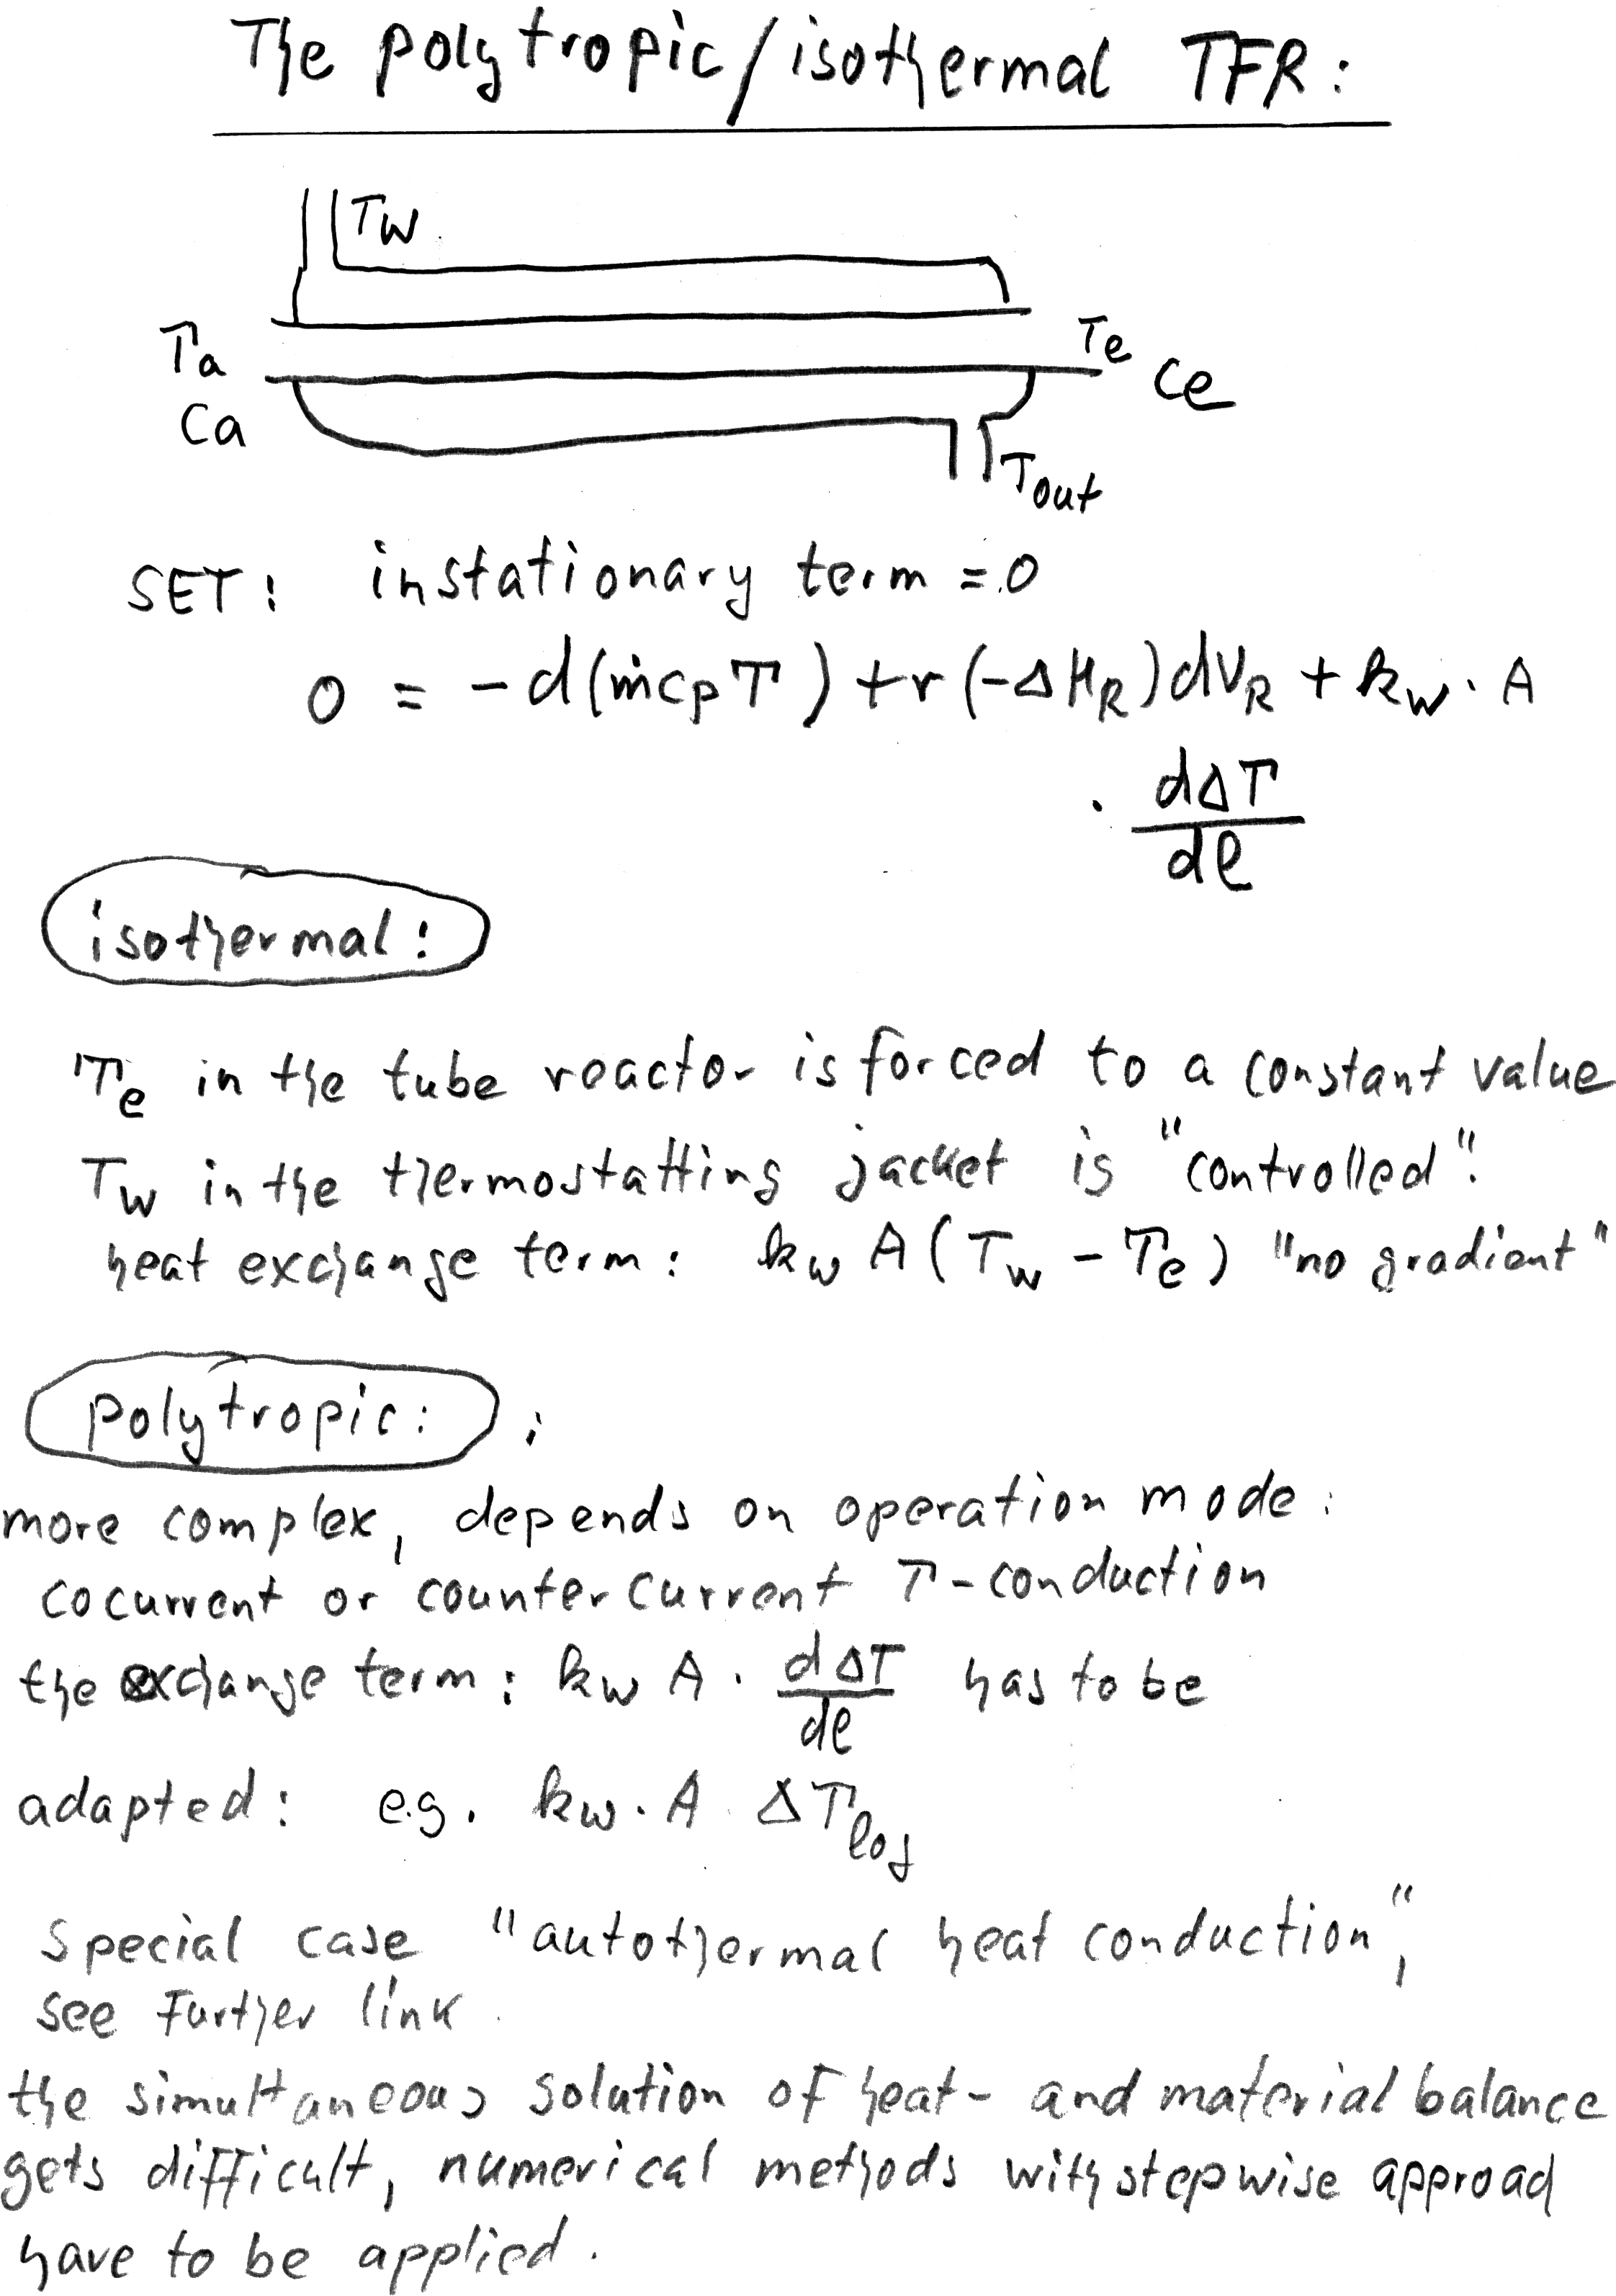 The polytropic/isothermal TFR:
Tw
Ta
Te
Ce
Ca
Tout
SET: instationary term = 0
0 = - d(ṁcpT) + r(-ΔHR)dVR + kw · A
· dΔT/dl
isothermal:
Te in the tube reactor is forced to a constant value
Tw in the thermostatting jacket is "controlled".
heat exchange term: kw A (Tw - Te) "no gradient"
polytropic: :
more complex, depends on operation mode:
cocurrent or countercurrent T-conduction
the exchange term: kw A · dΔT/dl has to be
adapted: e.g. kw · A · ΔTlog
special case "autothermal heat conduction",
see further link.
the simultaneous solution of heat- and material balance
gets difficult, numerical methods with stepwise approach
have to be applied.